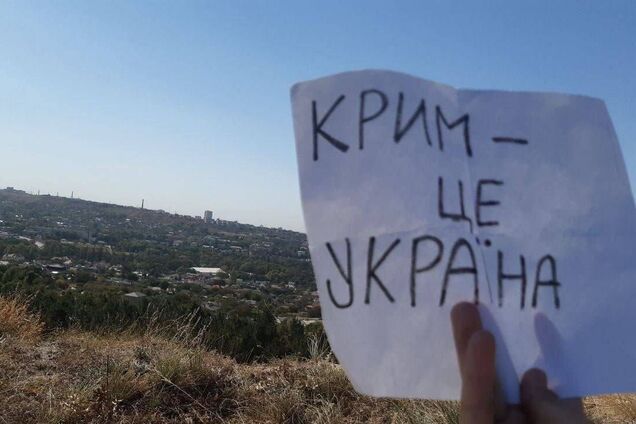 КРИМ –
ЦЕ
УКРАЇНА